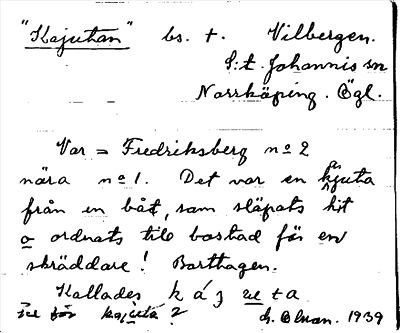 "Kajutan" bs. t. Vilbergen.
S:t Johannis sn
Norrköping. Ögl.
Var = Fredriksberg no 2
nära no 1. Det var en kjuta
från en båt, som släpats hit
o ordnats till bostad för en
skräddare! Borttagen.
Kallades
kajuta? 1939